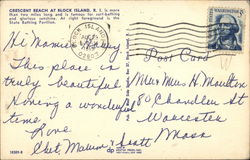 CRESCENT BEACH AT BLOCK ISLAND, R. I. is more
than two miles long and is famous for surf-bathing
and glorious sunshine. At right foreground is the
State Bathing Pavilion.
BLOCK ISLAND
WASHINGTON
5¢
Hi
This place is
truly beautiful.
Having a wonderful
time.
Love
Post Card
Mr. & Mrs. H. Moulton
80 Chandler St
Worcester
Mass